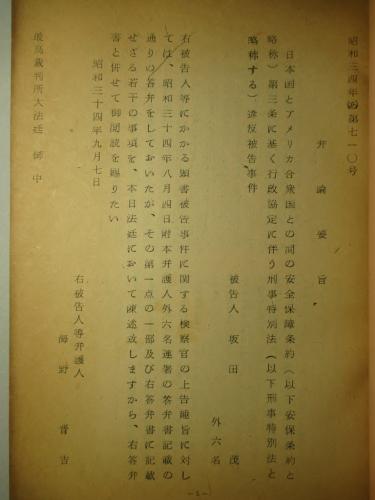 昭和三四年(あ)第七一〇号
弁論要旨
日本国とアメリカ合衆国との間の安全保障条約(以下安保条約と
略称)第三条に基く行政協定に伴う刑事特別法(以下刑事特別法と
略称する)違反被告事件
被告人 坂田茂
外六名
右被告人等にかかる頭書被告事件に関する検察官の上告趣旨に対し
ては、昭和三十四年八月四日附本弁護人外六名連署の答弁書記載の
通りの答弁をしておいたが、その第一点の一部及び右答弁書に記載
せざる若干の事項を、本日法廷において陳述致しますから、右答弁
書と併せて御閲読を賜りたい
昭和三十四年九月七日
右被告人等弁護人
海野晋吉
最高裁判所大法廷 御中
-1-